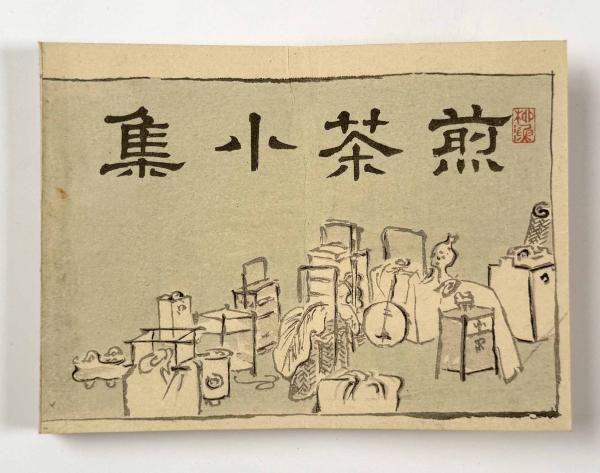 煎茶小集